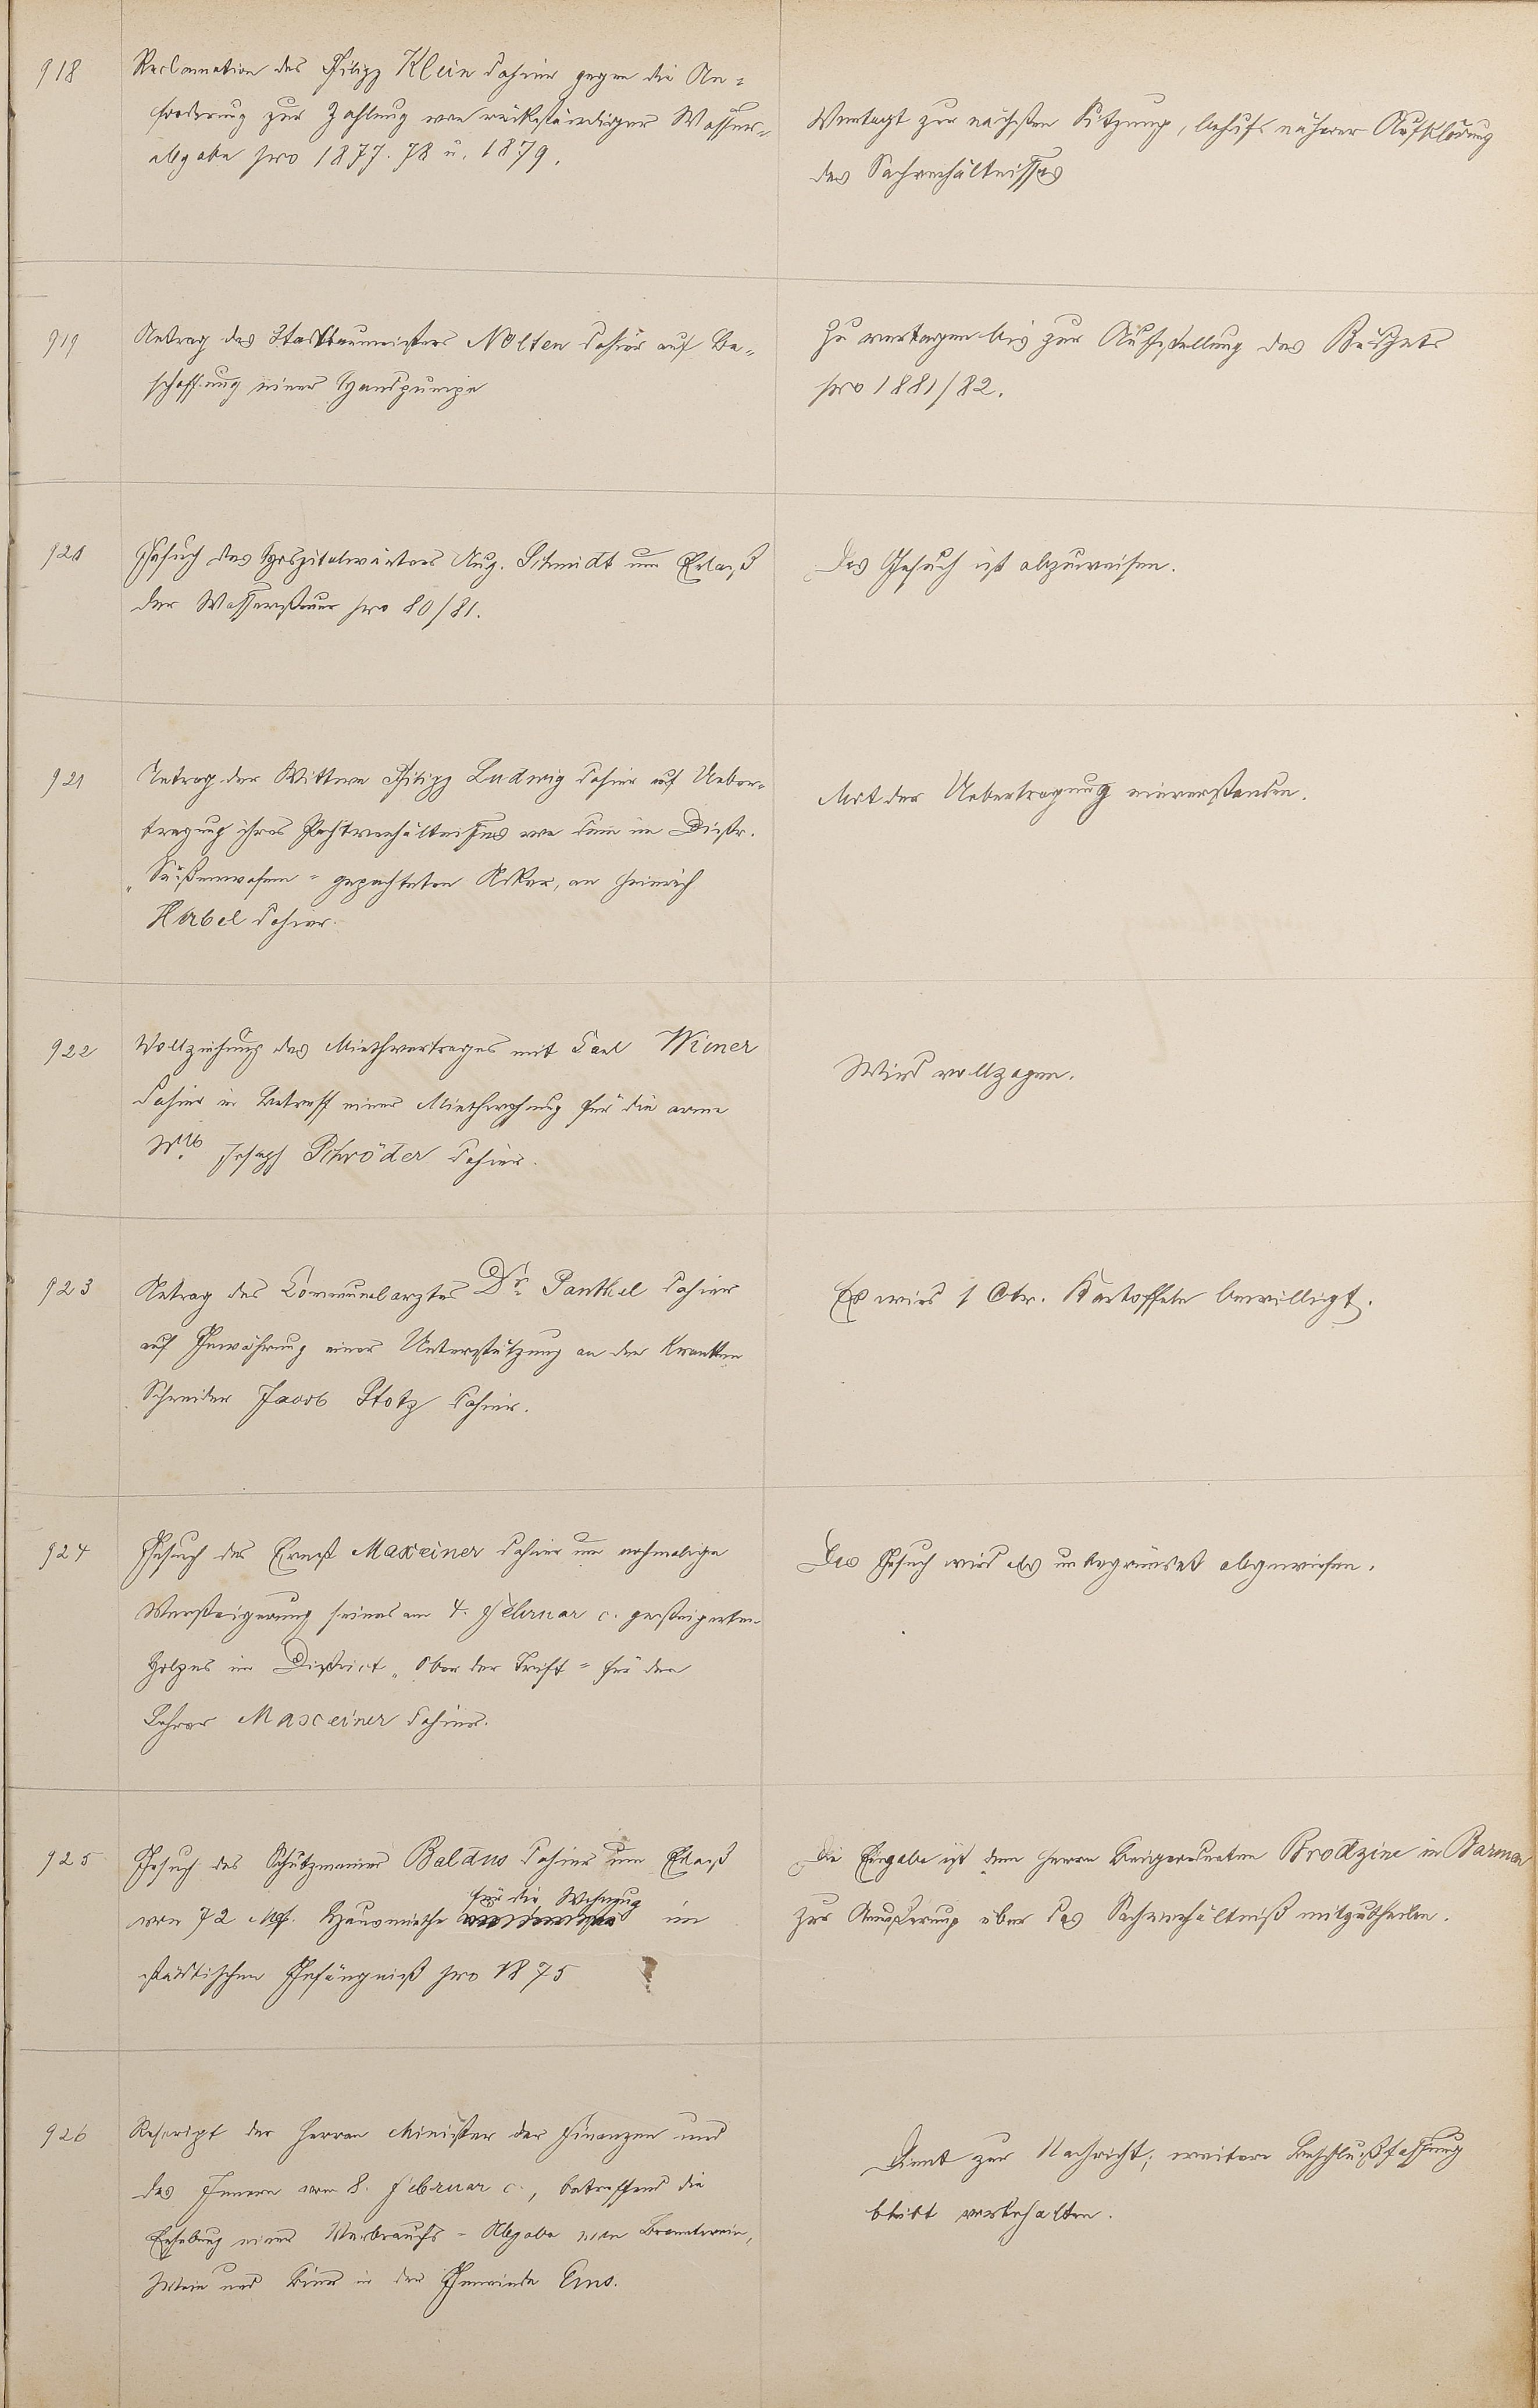 918
Reclamation des Philipp Klein dahier gegen die An=
forderung zur Zahlung von rückständiger Wasser=
abgabe pro 1877. 78 u. 1879.
Vertagt zur nächsten Sitzung, behufs näherer Aufklärung
des Sachverhältnisses
919
Antrag des Stadtbaumeisters Nolten dahier auf Be=
schaffung einer Handpumpe
Zu vertagen bis zur Aufstellung des Budgets
pro 1881/82.
920
Gesuch des Hospitalwärters Aug. Schmidt um Erlaß
der Wassersteuer pro 80/81.
Das Gesuch ist abzuweisen.
921
Antrag der Wittwe Philipp Ludwig dahier auf Ueber=
tragung ihres Pachtverhältnisses von dem im Distr.
gepachteten Acker, an Heinrich
Herbel dahier.
Mit der Uebertragung einverstanden.
922
Vollziehung des Miethvertrages mit Carl Wimer
dahier in Betreff einer Miethwohnung für die arme
Wtb Joseph Schröder dahier.
Wird vollzogen.
923
Antrag des Communalarztes Dr. Panthel dahier
auf Gewährung einer Unterstützung an den kranken
Schneider Jacob Stotz dahier.
Es wird 1 Ctr. Kartoffeln bewilligt.
924
Gesuch des Ernst Maxeiner dahier um nochmalige
Versteigerung seines am 4. Februar c. gesteigerten
Holzes im District „Ober der Trift" für den
Lehrer Maxeiner dahier.
Das Gesuch wird als unbegründet abgewiesen.
925
Gesuch des Schutzmannes Baldus dahier um Erlaß
für die Wohnung
von 72 Mk. Hausmiethe im
städtischen Gefängniß pro 1875
Die Eingabe ist dem Herrn Beigeordneten Brodzine in Barmen
zur Aeußerung über das Sachverhältniß mitzutheilen.
926
Rescript der Herren Minister der Finanzen und
des Innern vom 8. Februar c., betreffend die
Erhebung einer Verbrauchs-Abgabe von Branntwein,
Wein und Bier in der Gemeinde Ems.
Dient zur Nachricht; weitere Beschlußfassung
bleibt vorbehalten.